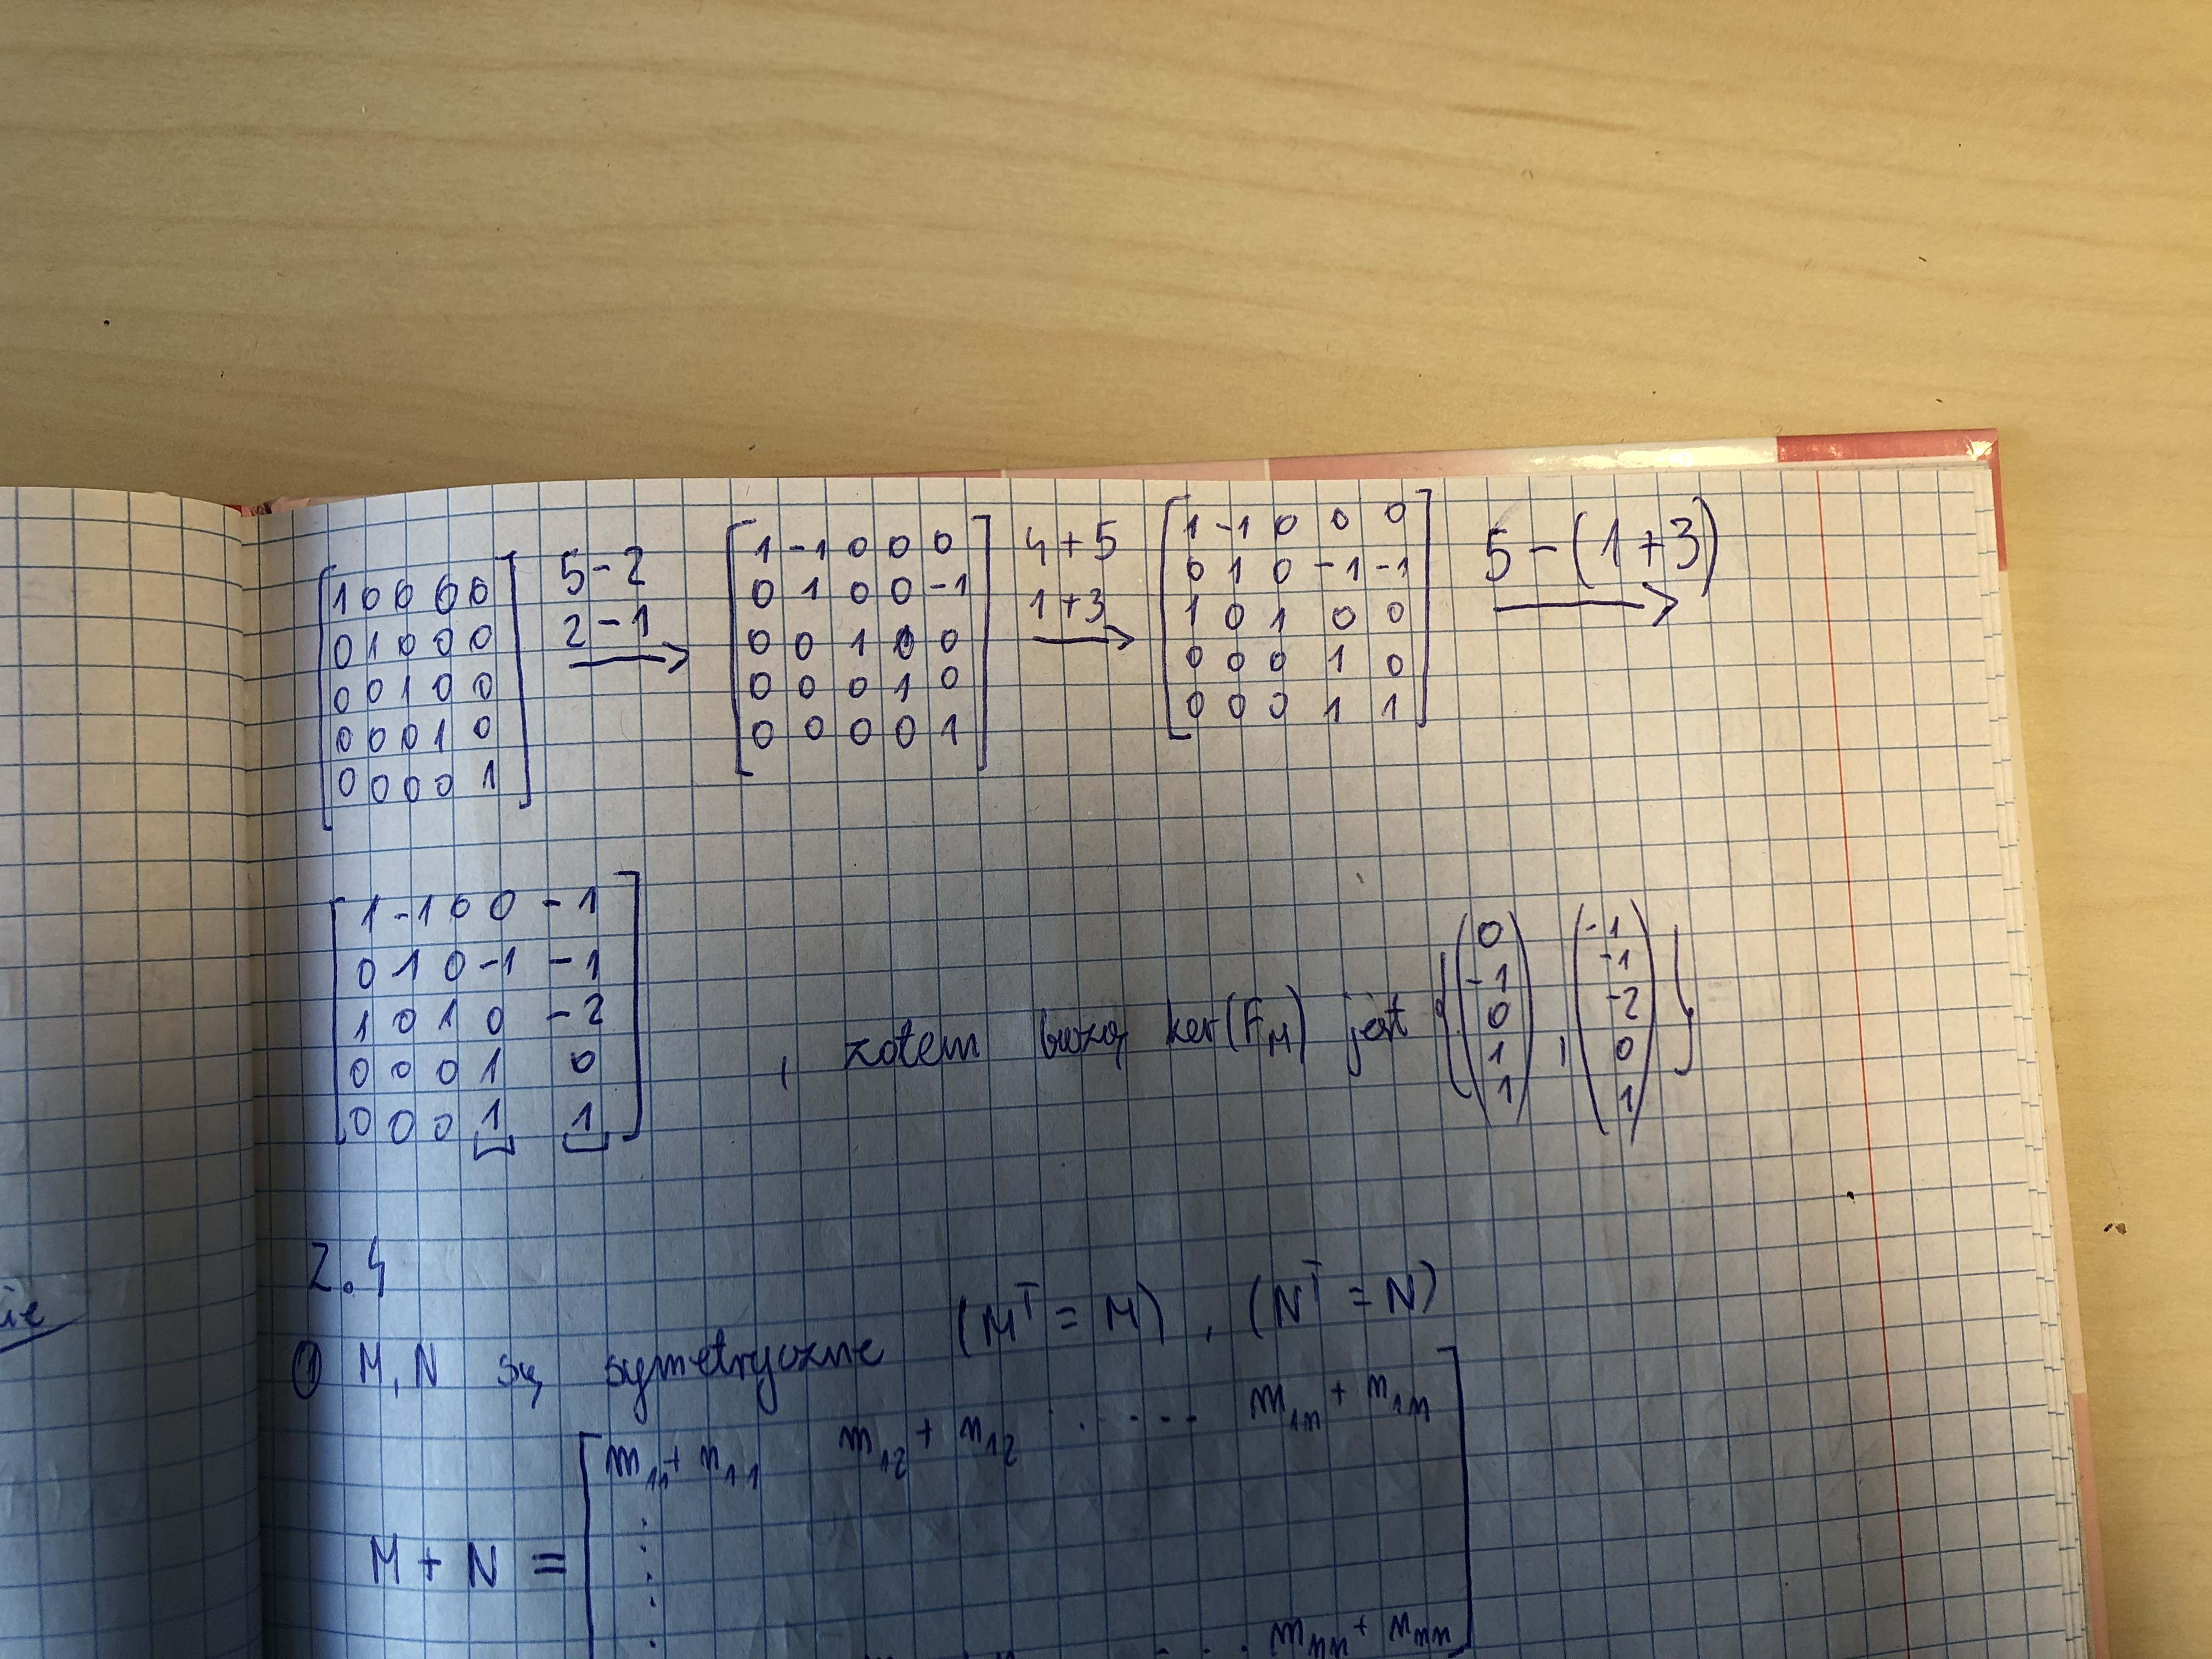 [1 0 0 0 0] 5-2 [1 -1 0 0 0] 4+5 [1 -1 0 0 0] 5-(1+3)
[0 1 0 0 0] 2-1 [0 1 0 0 -1] 1+3 [0 1 0 -1 -1] →
[0 0 1 0 0] → [0 0 1 0 0] → [1 0 1 0 0]
[0 0 0 1 0] [0 0 0 1 0] [0 0 0 1 0]
[0 0 0 0 1] [0 0 0 0 1] [0 0 0 1 1]
[1 -1 0 0 -1]
[0 1 0 -1 -1]
[1 0 1 0 -2]
[0 0 0 1 0]
[0 0 0 1 1]
, zatem bazą ker(F_M) jest {(0 -1 0 1 1), (-1 -1 -2 0 1)}
2.4
① M, N są symetryczne (M^T = M), (N^T = N)
m_11 + n_11 m_12 + n_12 ..... m_1n + n_1n
M + N =
... m_nn + n_nn